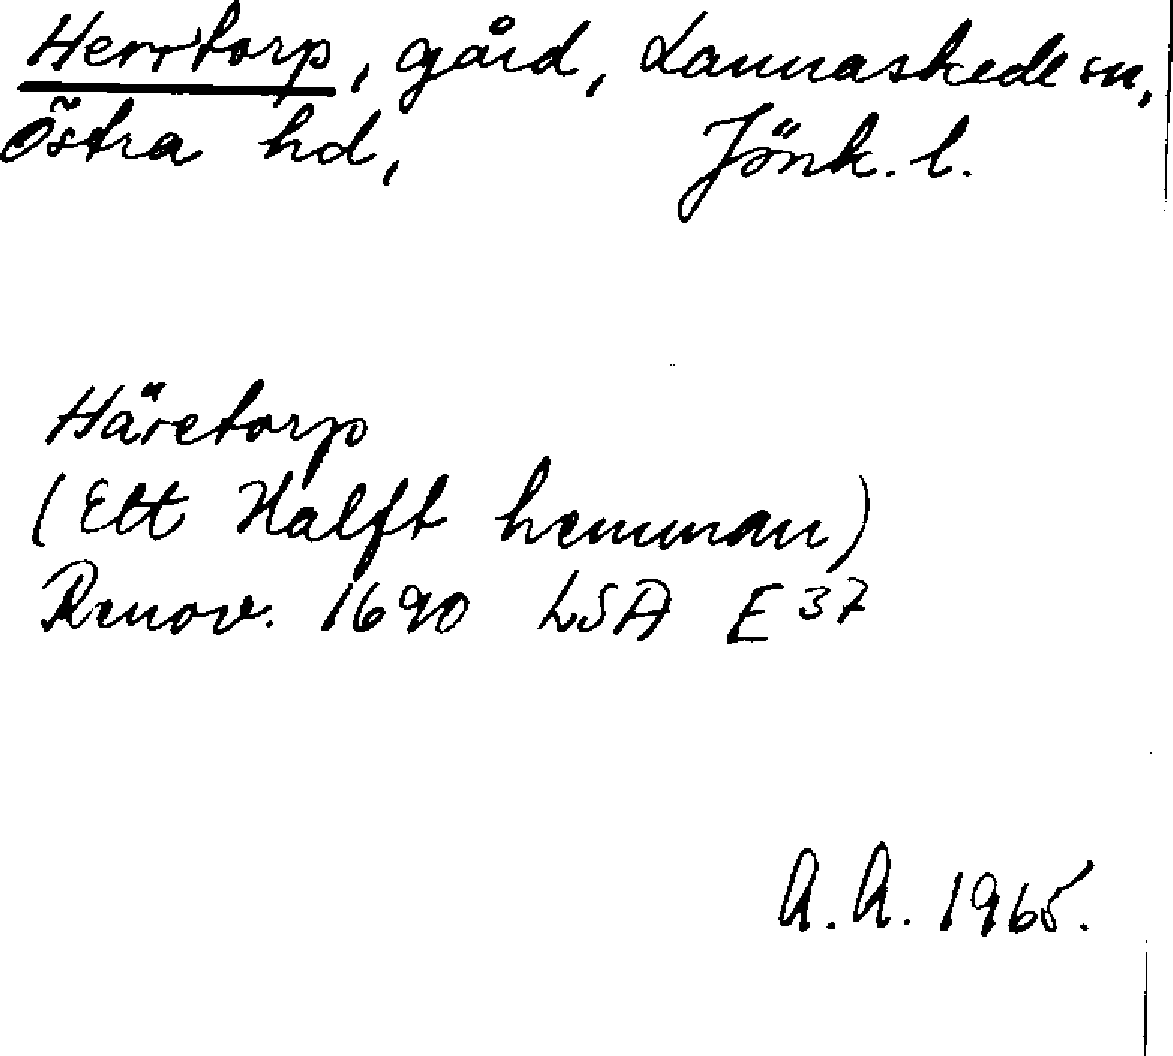 Herrtorp, gård, Lannaskede sn,
Östra hd, Jönk. l.
Häretorp
(Ett Halft hemman)
Renov. 1690 LSA E 37
A.A. 1965.